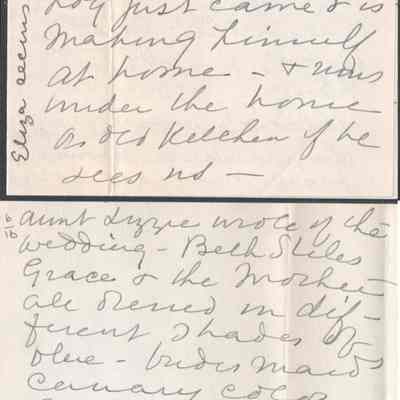 just came & is
making himself
at home - & runs
under the house
or old kitchen if he
sees us -
Eliza seems
6/10
aunt Lizzie wrote of the
wedding - Beth Stiles
Grace & the Mother
all dressed in dif-
ferent shades of
blue - bridesmaids
canary color